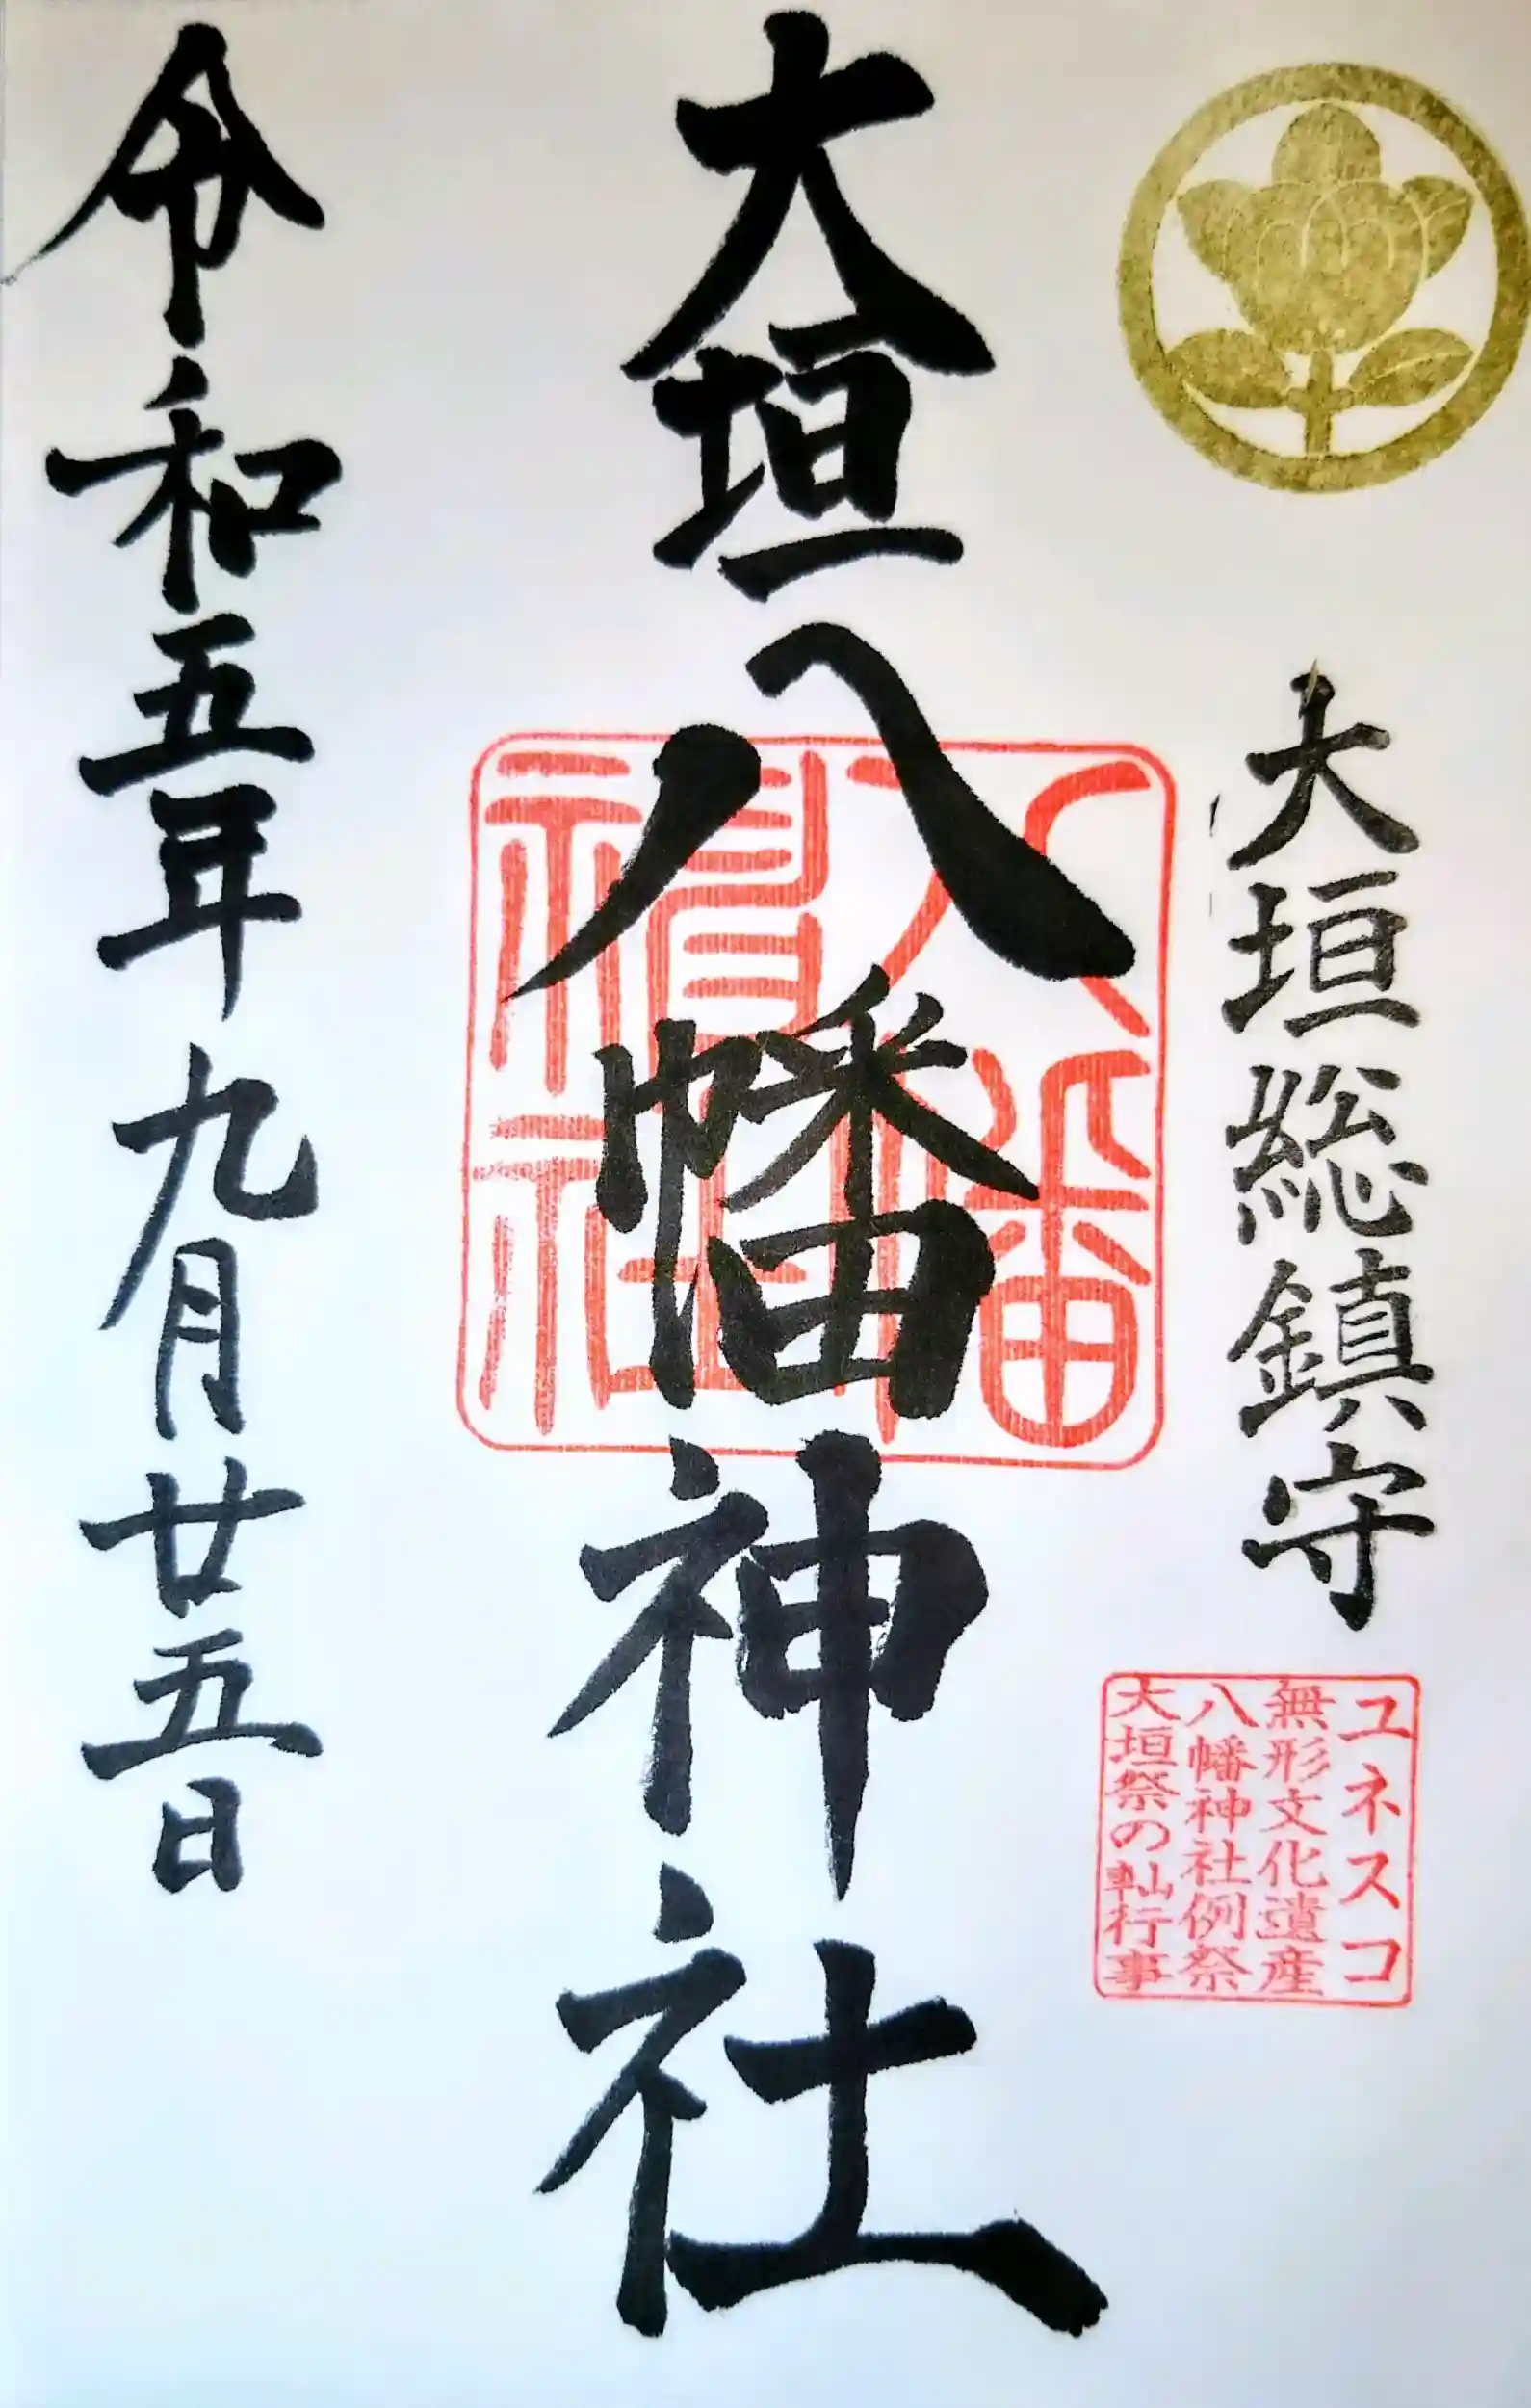 大垣総鎮守
ユネスコ
無形文化遺産
八幡神社例祭
大垣祭の軕行事
大垣八幡神社
八幡
神社
令和五年九月廿五日